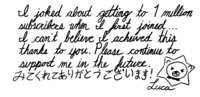 I joked about getting to 1 million
subscribers when I first joined...
I can't believe I achieved this
thanks to you. Please continue to
support me in the future.
みてくれてありがとうございます!
Luca